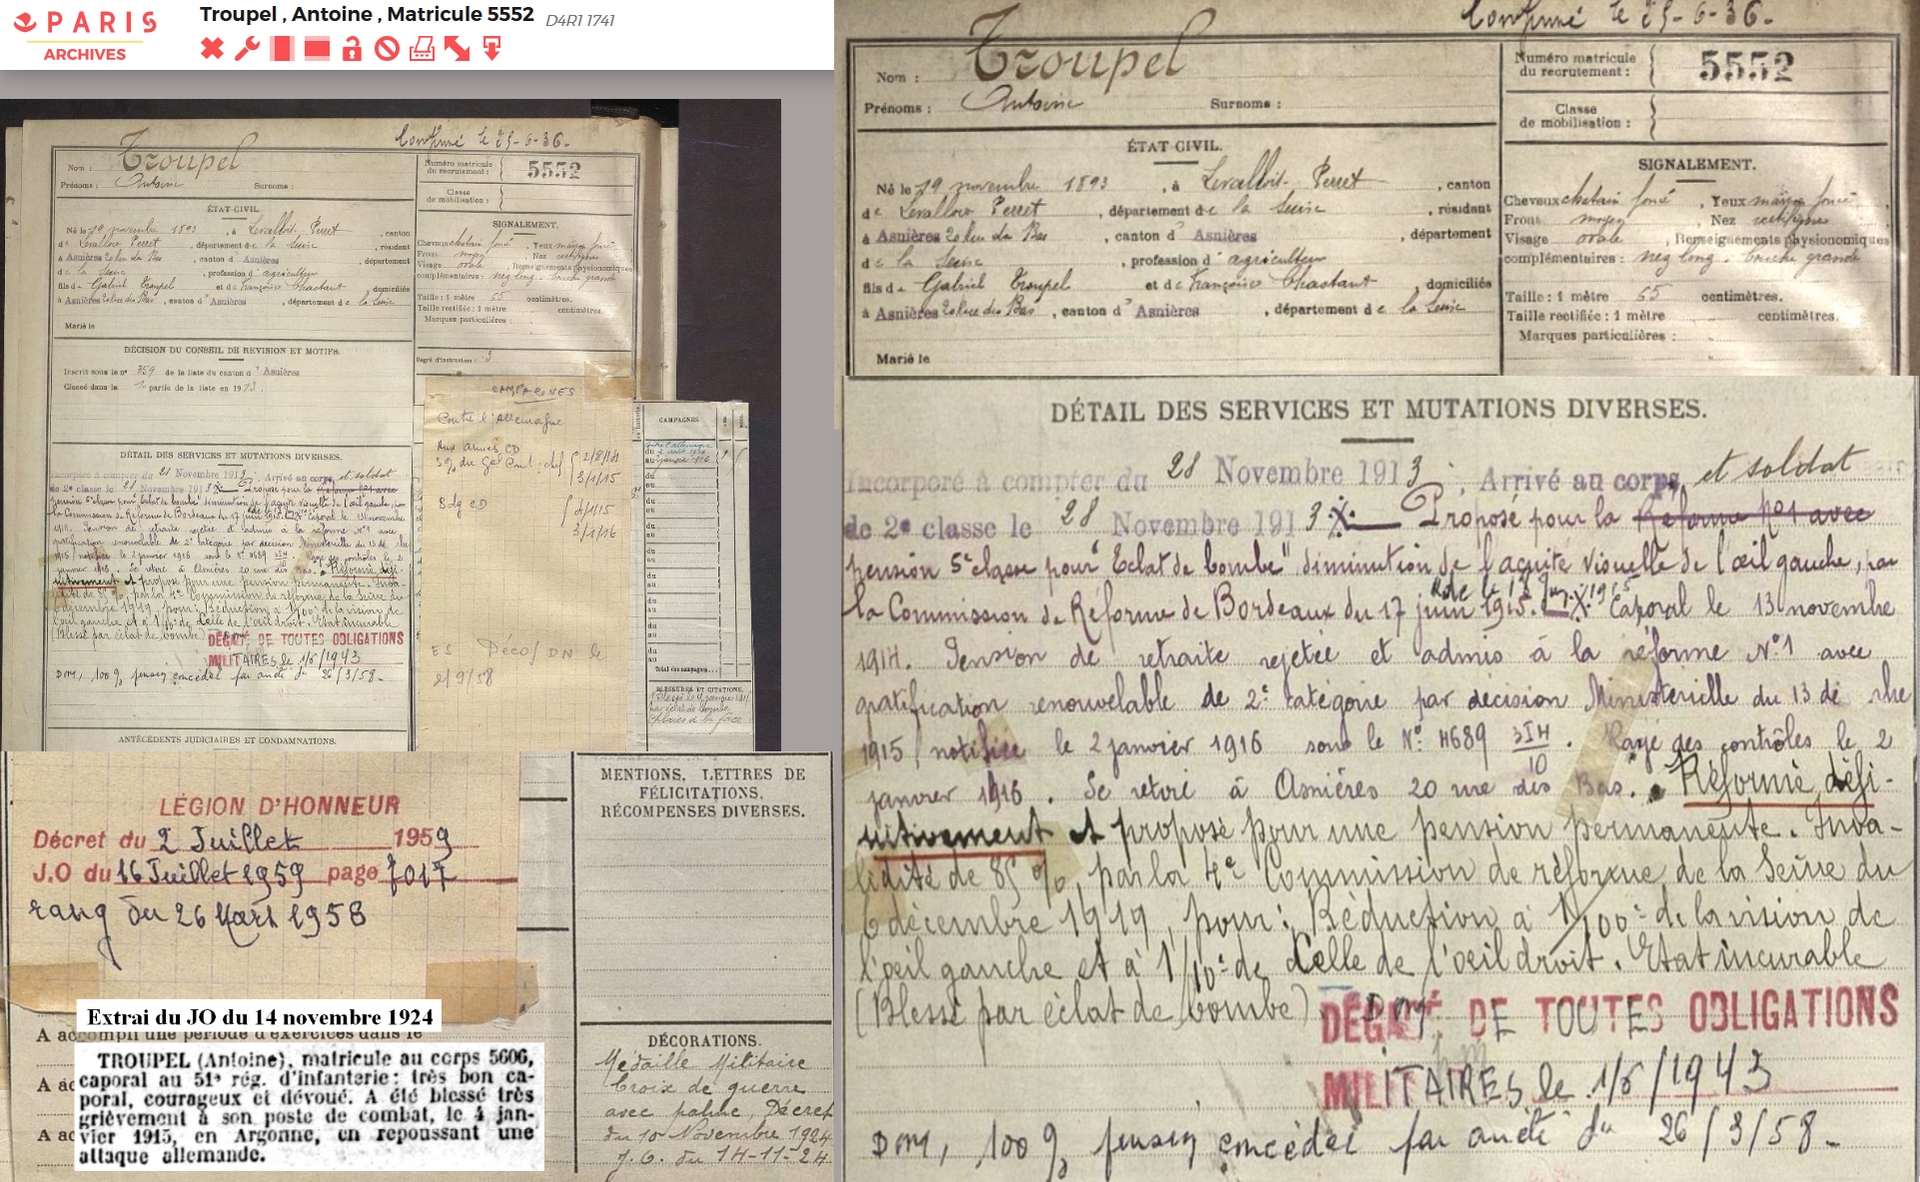 PARIS
ARCHIVES
Troupel , Antoine , Matricule 5552 D4R1 1741
Confirmé le 25-6-36.
Nom : Troupel
Prénoms : Antoine Surnoms :
Numéro matricule
du recrutement : 5552
Classe
de mobilisation :
ÉTAT CIVIL.
Né le 19 novembre 1893, à Levallois-Perret, canton
de Levallois Perret, département de la Seine, résidant
à Asnières 20 Rue des Bas, canton d'Asnières, département
de la Seine, profession d'agriculteur
fils de Gabriel Troupel et de Françoise Chastant, domiciliés
à Asnières 20 Rue des Bas, canton d'Asnières, département de la Seine
Marié le
SIGNALEMENT.
Cheveux chatain foncé, Yeux marron foncé
Front moyen, Nez rectiligne
Visage ovale, Renseignements physionomiques
complémentaires : nez long - bouche grande
Taille : 1 mètre 65 centimètres.
Taille rectifiée : 1 mètre centimètres.
Marques particulières :
Degré d'instruction : 3
DÉCISION DU CONSEIL DE REVISION ET MOTIFS.
Inscrit sous le n° 859 de la liste du canton d'Asnières
Classé dans la 1e partie de la liste en 1913.
CAMPAGNES
Contre l'Allemagne
Aux armées CD
2/8/14
3/1/15
Bdg CD
4/1/15
3/1/16
Déco/ DN le
2/9/58
CAMPAGNES
Total des campagnes...
BLESSURES ET CITATIONS.
ANTÉCÉDENTS JUDICIAIRES ET CONDAMNATIONS.
DÉTAIL DES SERVICES ET MUTATIONS DIVERSES.
Incorporé à compter du 28 Novembre 1913. Arrivé au corps et soldat
de 2e classe le 28 Novembre 1913 X. Proposé pour la Réforme n°1 avec
pension 5e classe pour "Eclat de bombe" diminution de l'aquité visuelle de l'œil gauche, par
la Commission de Réforme de Bordeaux du 17 juin 1915. X. Caporal le 13 novembre
1914. Pension de retraite rejetée et admis à la réforme N°1 avec
gratification renouvelable de 2e catégorie par décision Ministérielle du 13 de
1915, notifiée le 2 janvier 1916 sous le N° 4689 . Rayé des contrôles le 2
janvier 1916. Se retire à Asnières 20 rue des Bas. Réformé défi-
nitivement et proposé pour une pension permanente. Inva-
lidité de 85 %, par la 4e Commission de réforme de la Seine du
6 décembre 1919, pour : Réduction à 1/100e de la vision de
l'œil gauche et à 1/10e de celle de l'œil droit. Etat incurable
(Blessé par éclat de bombe) DÉGAGÉ DE TOUTES OBLIGATIONS
MILITAIRES le 1/5/1943
DM, 100 % pension concédée par arrêté du 26/3/58-
LÉGION D'HONNEUR
Décret du 2 Juillet 1959
J.O du 16 Juillet 1959 page 7017
rang du 26 Mars 1958
MENTIONS, LETTRES DE
FÉLICITATIONS,
RÉCOMPENSES DIVERSES.
Extrai du JO du 14 novembre 1924
A accompli une période d'exercices dans le
TROUPEL (Antoine), matricule au corps 5606,
caporal au 51e rég. d'infanterie : très bon ca-
poral, courageux et dévoué. A été blessé très
grièvement à son poste de combat, le 4 jan-
vier 1915, en Argonne, en repoussant une
attaque allemande.
DÉCORATIONS.
Médaille Militaire
Croix de guerre
avec palme, Décret
du 10 Novembre 1924
J.O. du 14-11-24